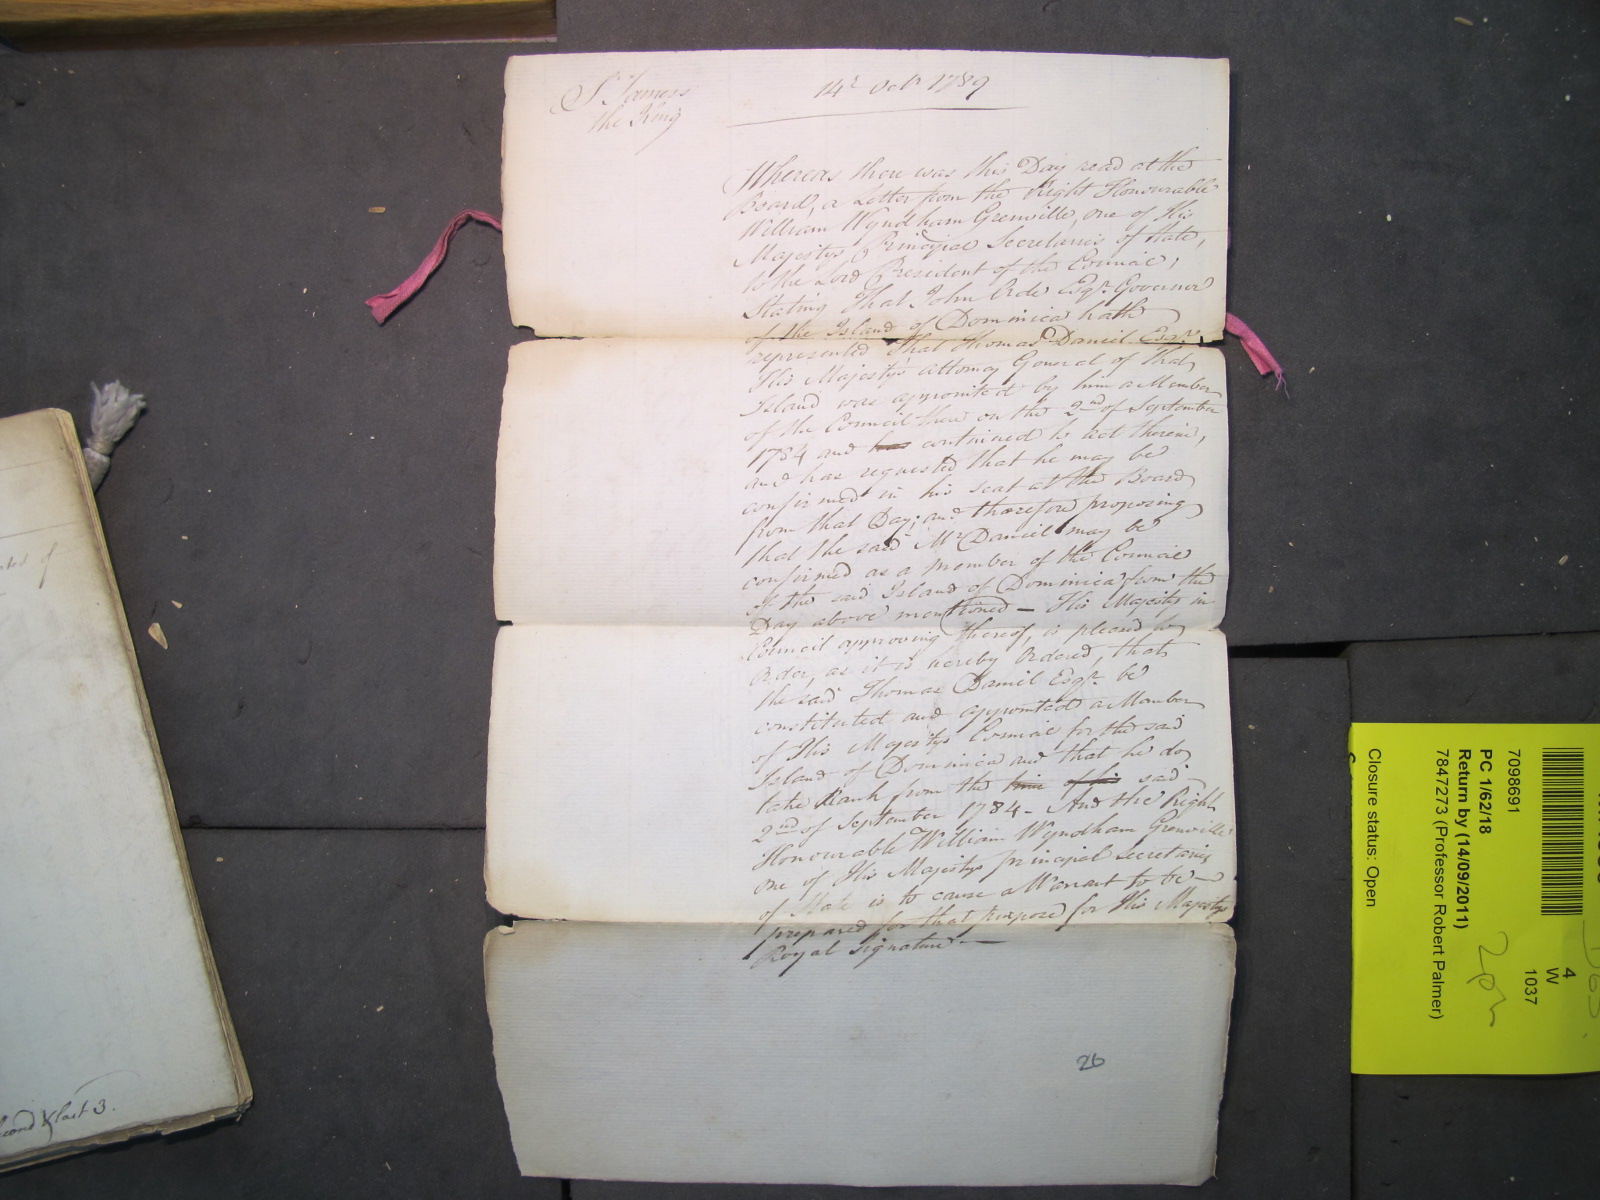 St. James's
the King
14th Octr 1789
Whereas there was this Day read at the
Board, a Letter from the Right Honourable
William Wyndham Grenville, one of His
Majestys Principal Secretaries of State,
to the Lord President of the Council,
Stating That John Orde Esqr. Governor
of the Island of Dominica hath
represented That Thomas Daniel Esqr.
His Majesty's Attorney General of that
Island was appointed by him a Member
of the Council there on the 2nd of September
1784 and has continued to act therein,
and has requested that he may be
confirmed in his seat at the Board
from that Day; and therefore proposing
that the said Mr Daniel may be
confirmed as a member of the Council
of the said Island of Dominica from the
Day above mentioned — His Majesty in
Council approving thereof, is pleased to
Order, as it is hereby Ordered, that
the said Thomas Daniel Esqr. be
constituted and appointed a Member
of His Majestys Council for the said
Island of Dominica and that he do
take Rank from the time of his said
2nd of September 1784 - And the Right
Honourable William Wyndham Grenville
one of His Majestys principal Secretaries
of State is to cause a Warrant to be
prepared for that purpose for His Majestys
Royal Signature —
26
of
last 3.
7098691
PC 1/62/18
Return by (14/09/2011)
7847273 (Professor Robert Palmer)
Closure status: Open
4
W
1037